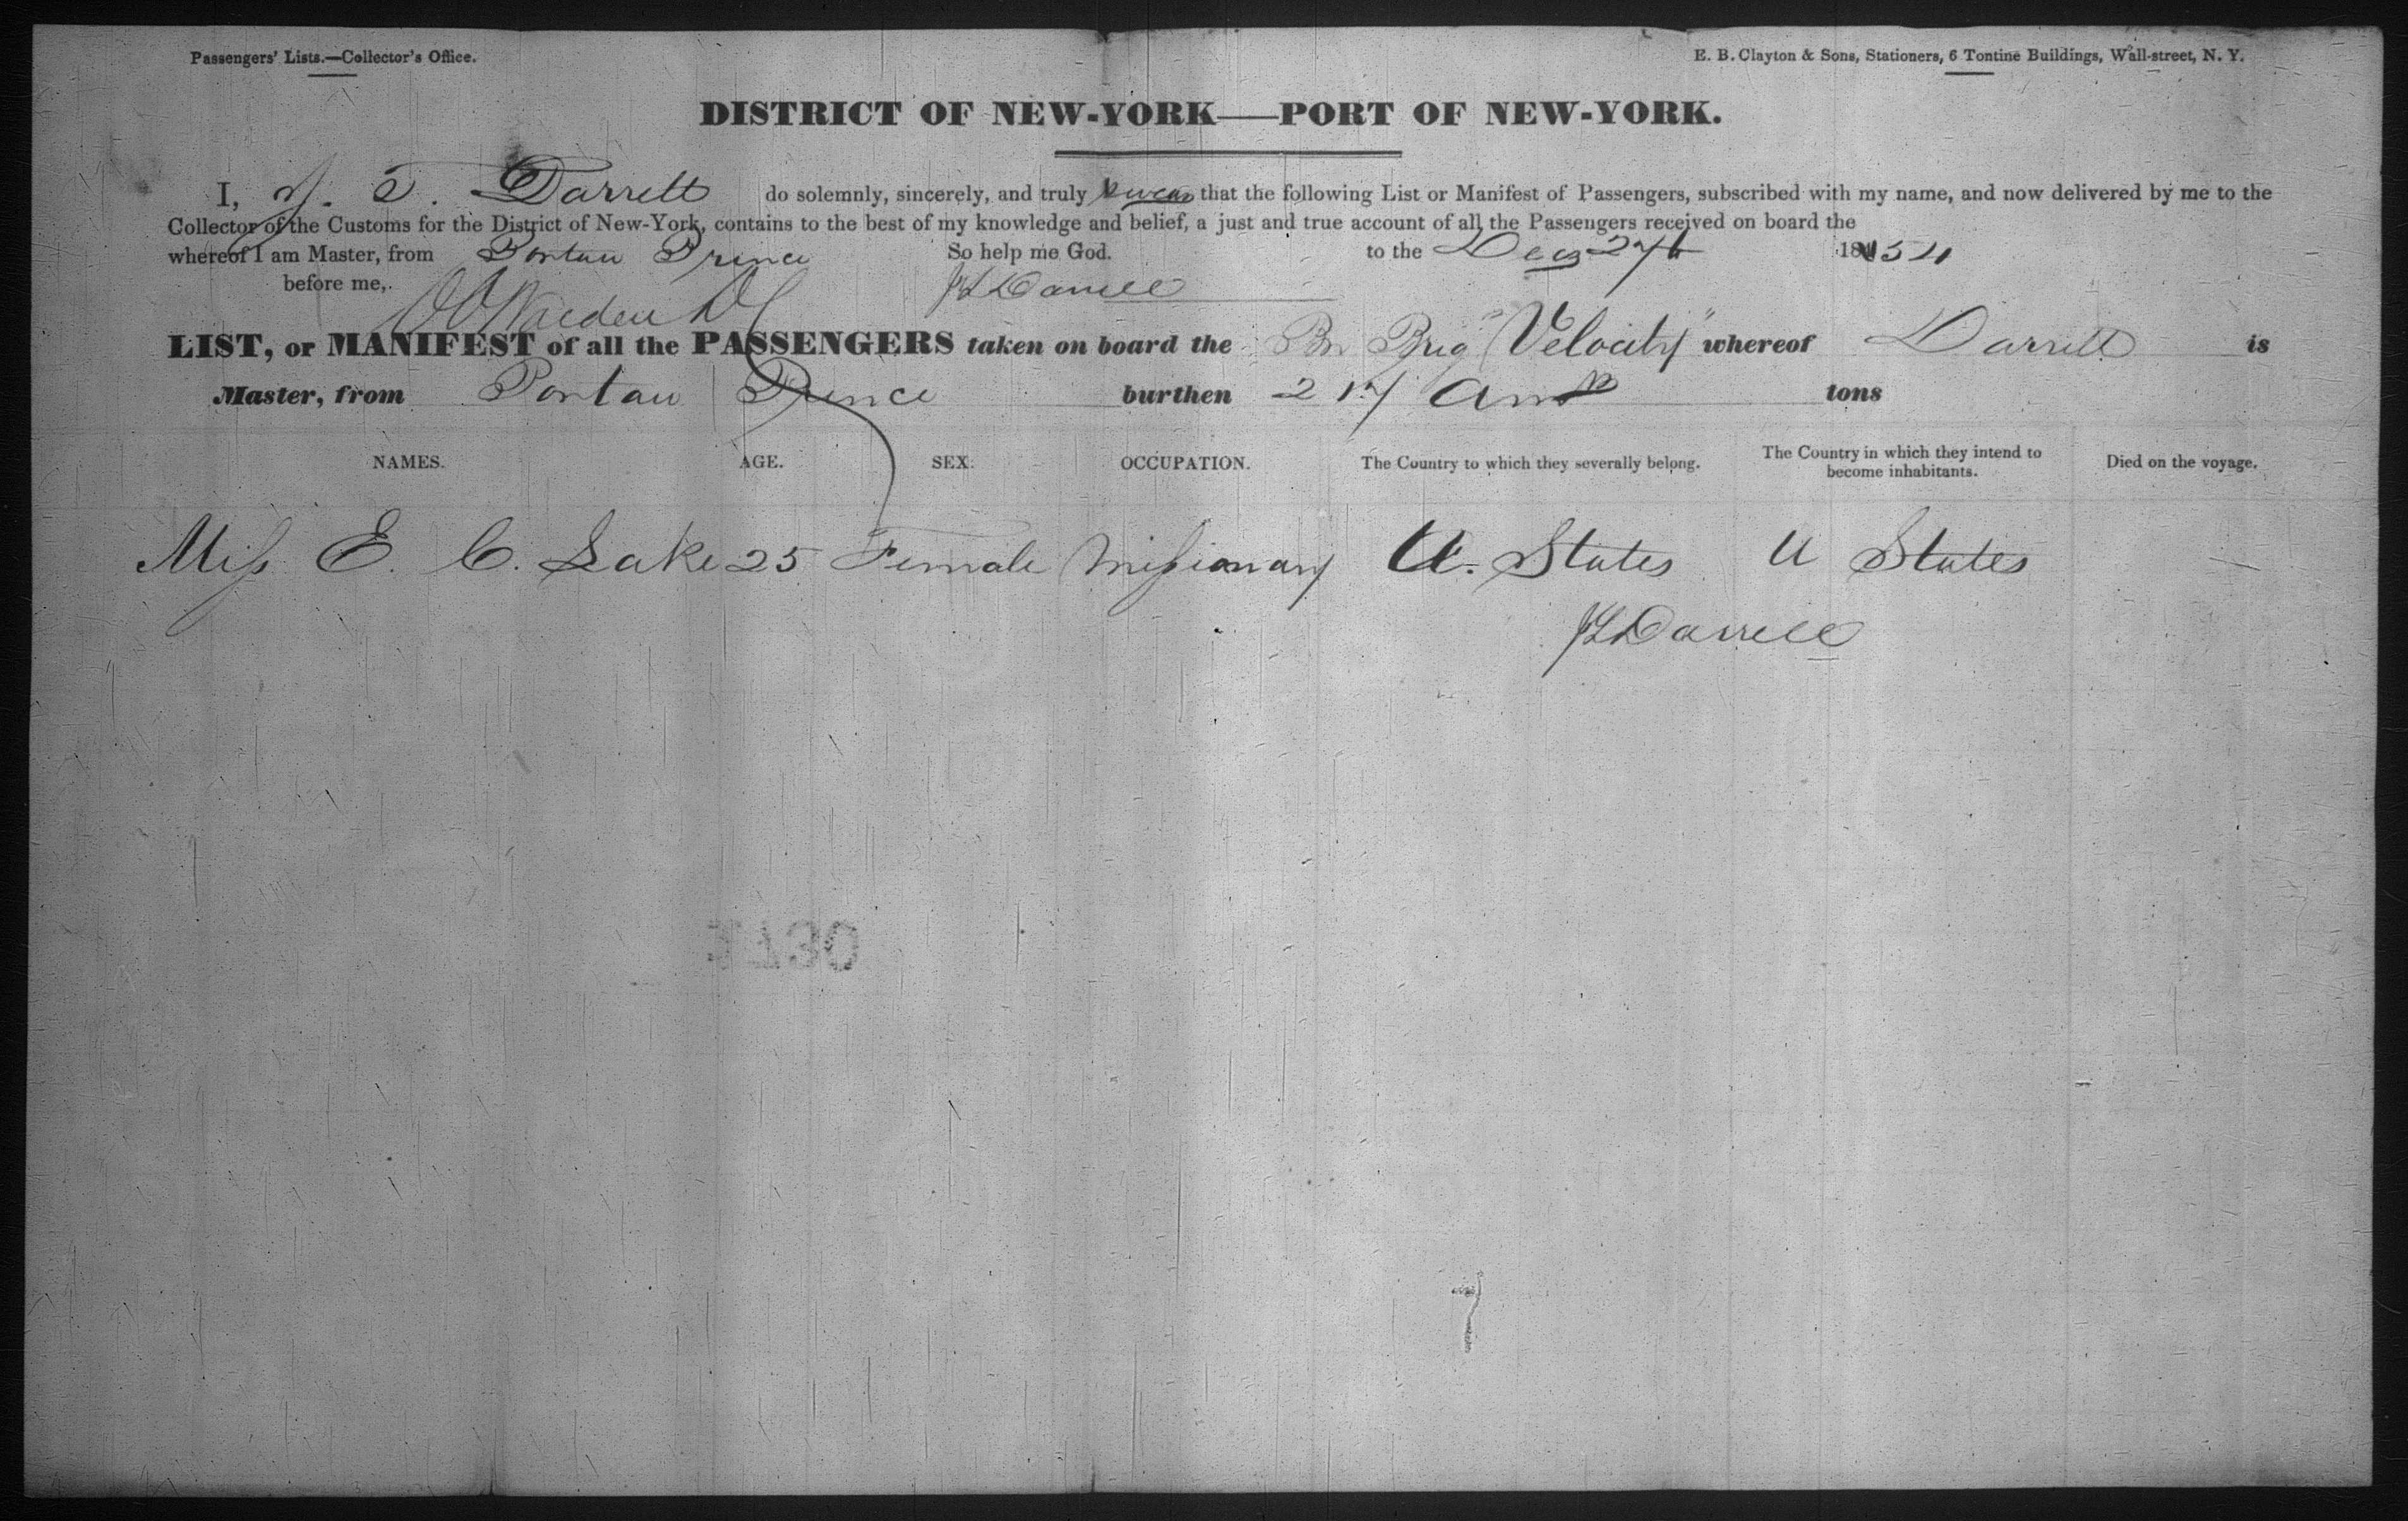 Passengers' Lists.—Collector's Office.
E. B. Clayton & Sons, Stationers, 6 Tontine Buildings, Wall-street, N. Y.
DISTRICT OF NEW-YORK—PORT OF NEW-YORK.
I, J. T. Darrell do solemnly, sincerely, and truly swear that the following List or Manifest of Passengers, subscribed with my name, and now delivered by me to the
Collector of the Customs for the District of New-York, contains to the best of my knowledge and belief, a just and true account of all the Passengers received on board the
whereof I am Master, from Portau Prince So help me God. to the Dec 27th 1854
before me, Darrell
LIST, or MANIFEST of all the PASSENGERS taken on board the Br Brig "Velocity" whereof Darrell is
Master, from Portau Prince burthen 217 tons
NAMES. AGE. SEX. OCCUPATION. The Country to which they severally belong. The Country in which they intend to become inhabitants. Died on the voyage.
Miss E. C. Lake 25 Female Missionary U. States U States —
Darrell
7